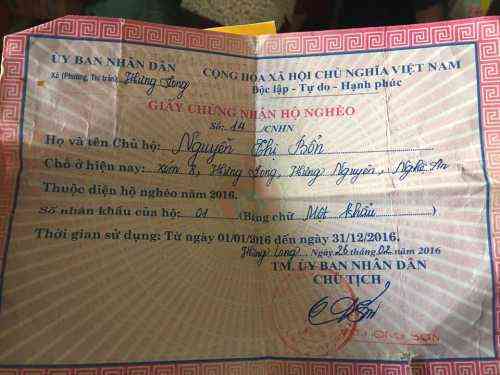 ỦY BAN NHÂN DÂN
Xã (Phường, Thị trấn): Hưng Long
CỘNG HÒA XÃ HỘI CHỦ NGHĨA VIỆT NAM
Độc lập - Tự do - Hạnh phúc
GIẤY CHỨNG NHẬN HỘ NGHÈO
Số: 14 /CNHN
Họ và tên Chủ hộ: Nguyễn Thị Bổn
Chỗ ở hiện nay: xóm 8, Hưng Long, Hưng Nguyên, Nghệ An
Thuộc diện hộ nghèo năm 2016.
Số nhân khẩu của hộ: 01 (Bằng chữ Một khẩu)
Thời gian sử dụng: Từ ngày 01/01/2016 đến ngày 31/12/2016.
Hưng Long, Ngày 26 tháng 02 năm 2016
TM. ỦY BAN NHÂN DÂN
CHỦ TỊCH